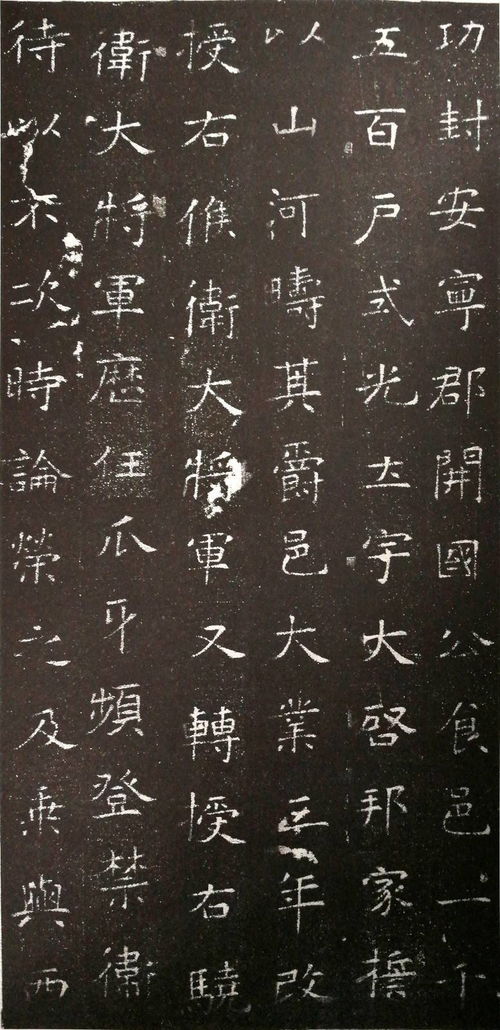 功封安寧郡開國公食邑一千
五百戶式光土宇大啓邦家
以山河疇其爵邑大業年改
授右候衛大將軍又轉授右驍
衛大將軍歷任爪牙頻登禁衛
待以不次時論榮之及乘輿西